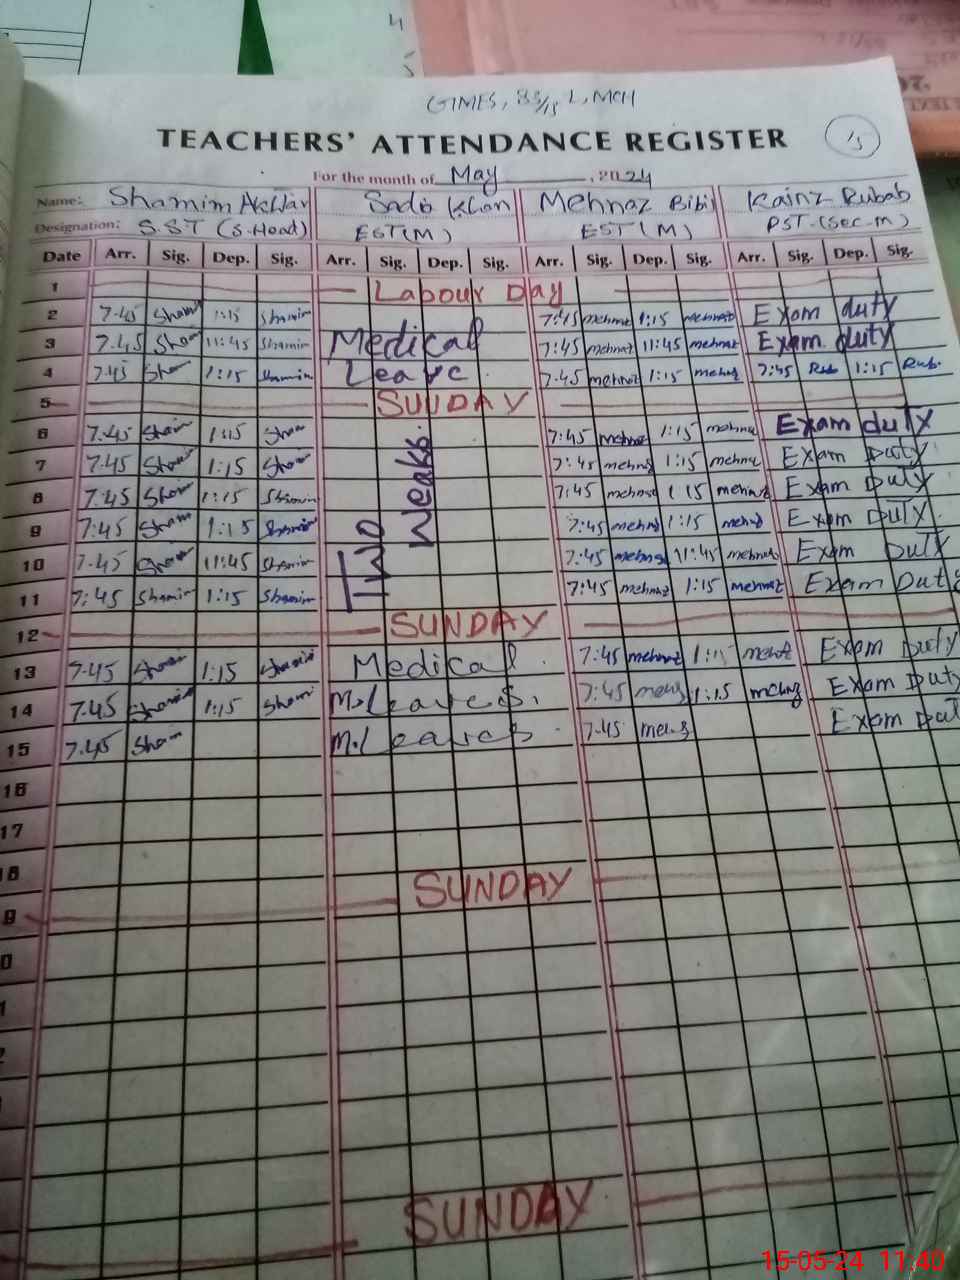 GIMES, 85/15 L, MCH
TEACHERS' ATTENDANCE REGISTER
15
For the month of May, 2024
Name: Shamim Akhtar Sado Khan Mehnaz Bibi Kainz Rubab
Designation: S.S.T (S-Head) EST(M) EST(M) PST-(Sec-M)
Date Arr. Sig. Dep. Sig. Arr. Sig. Dep. Sig. Arr. Sig. Dep. Sig. Arr. Sig. Dep. Sig.
1 Labour Day
2 7.45 Sham 1:15 Shamim 7:45 mehnaz 1:15 mehnaz Exam duty
3 7.45 Sham 11:45 Shamim Medical 7:45 mehnaz 11:45 mehnaz Exam duty
4 7.45 Sham 1:15 Shamim Leave 7.45 mehnaz 1:15 mehnaz 7:45 Rub 1:15 Rub.
5 SUNDAY
6 7.45 Sham 1:15 Sham 7:45 mehnaz 1:15 mehnaz Exam duty
7 7.45 Sham 1:15 Sham 7:45 mehnaz 1:15 mehnaz Exam Duty
8 7.45 Sham 1:15 Shamim 7:45 mehnaz 1:15 mehnaz Exam Duty
9 7:45 Sham 1:15 Shamim 7:45 mehnaz 1:15 mehnaz Exam DUTY
10 7.45 Sham 11:45 Shamim 7:45 mehnaz 11:45 mehnaz Exam Duty
11 7:45 Shamim 1:15 Shamim 7:45 mehnaz 1:15 mehnaz Exam Duty
Two Weaks.
12 SUNDAY
13 7.45 Sham 1:15 Shamim Medical 7:45 mehnaz 1:15 mehnaz Exam Duty
14 7.45 Shamim 1:15 Sham M.Leaves. 7:45 mehnaz 1:15 mehnaz Exam Duty
15 7.45 Sham M.Leaves 7.45 mehnaz Exam Dut
16
17
18
SUNDAY
9
0
SUNDAY
15-05-24 11:40